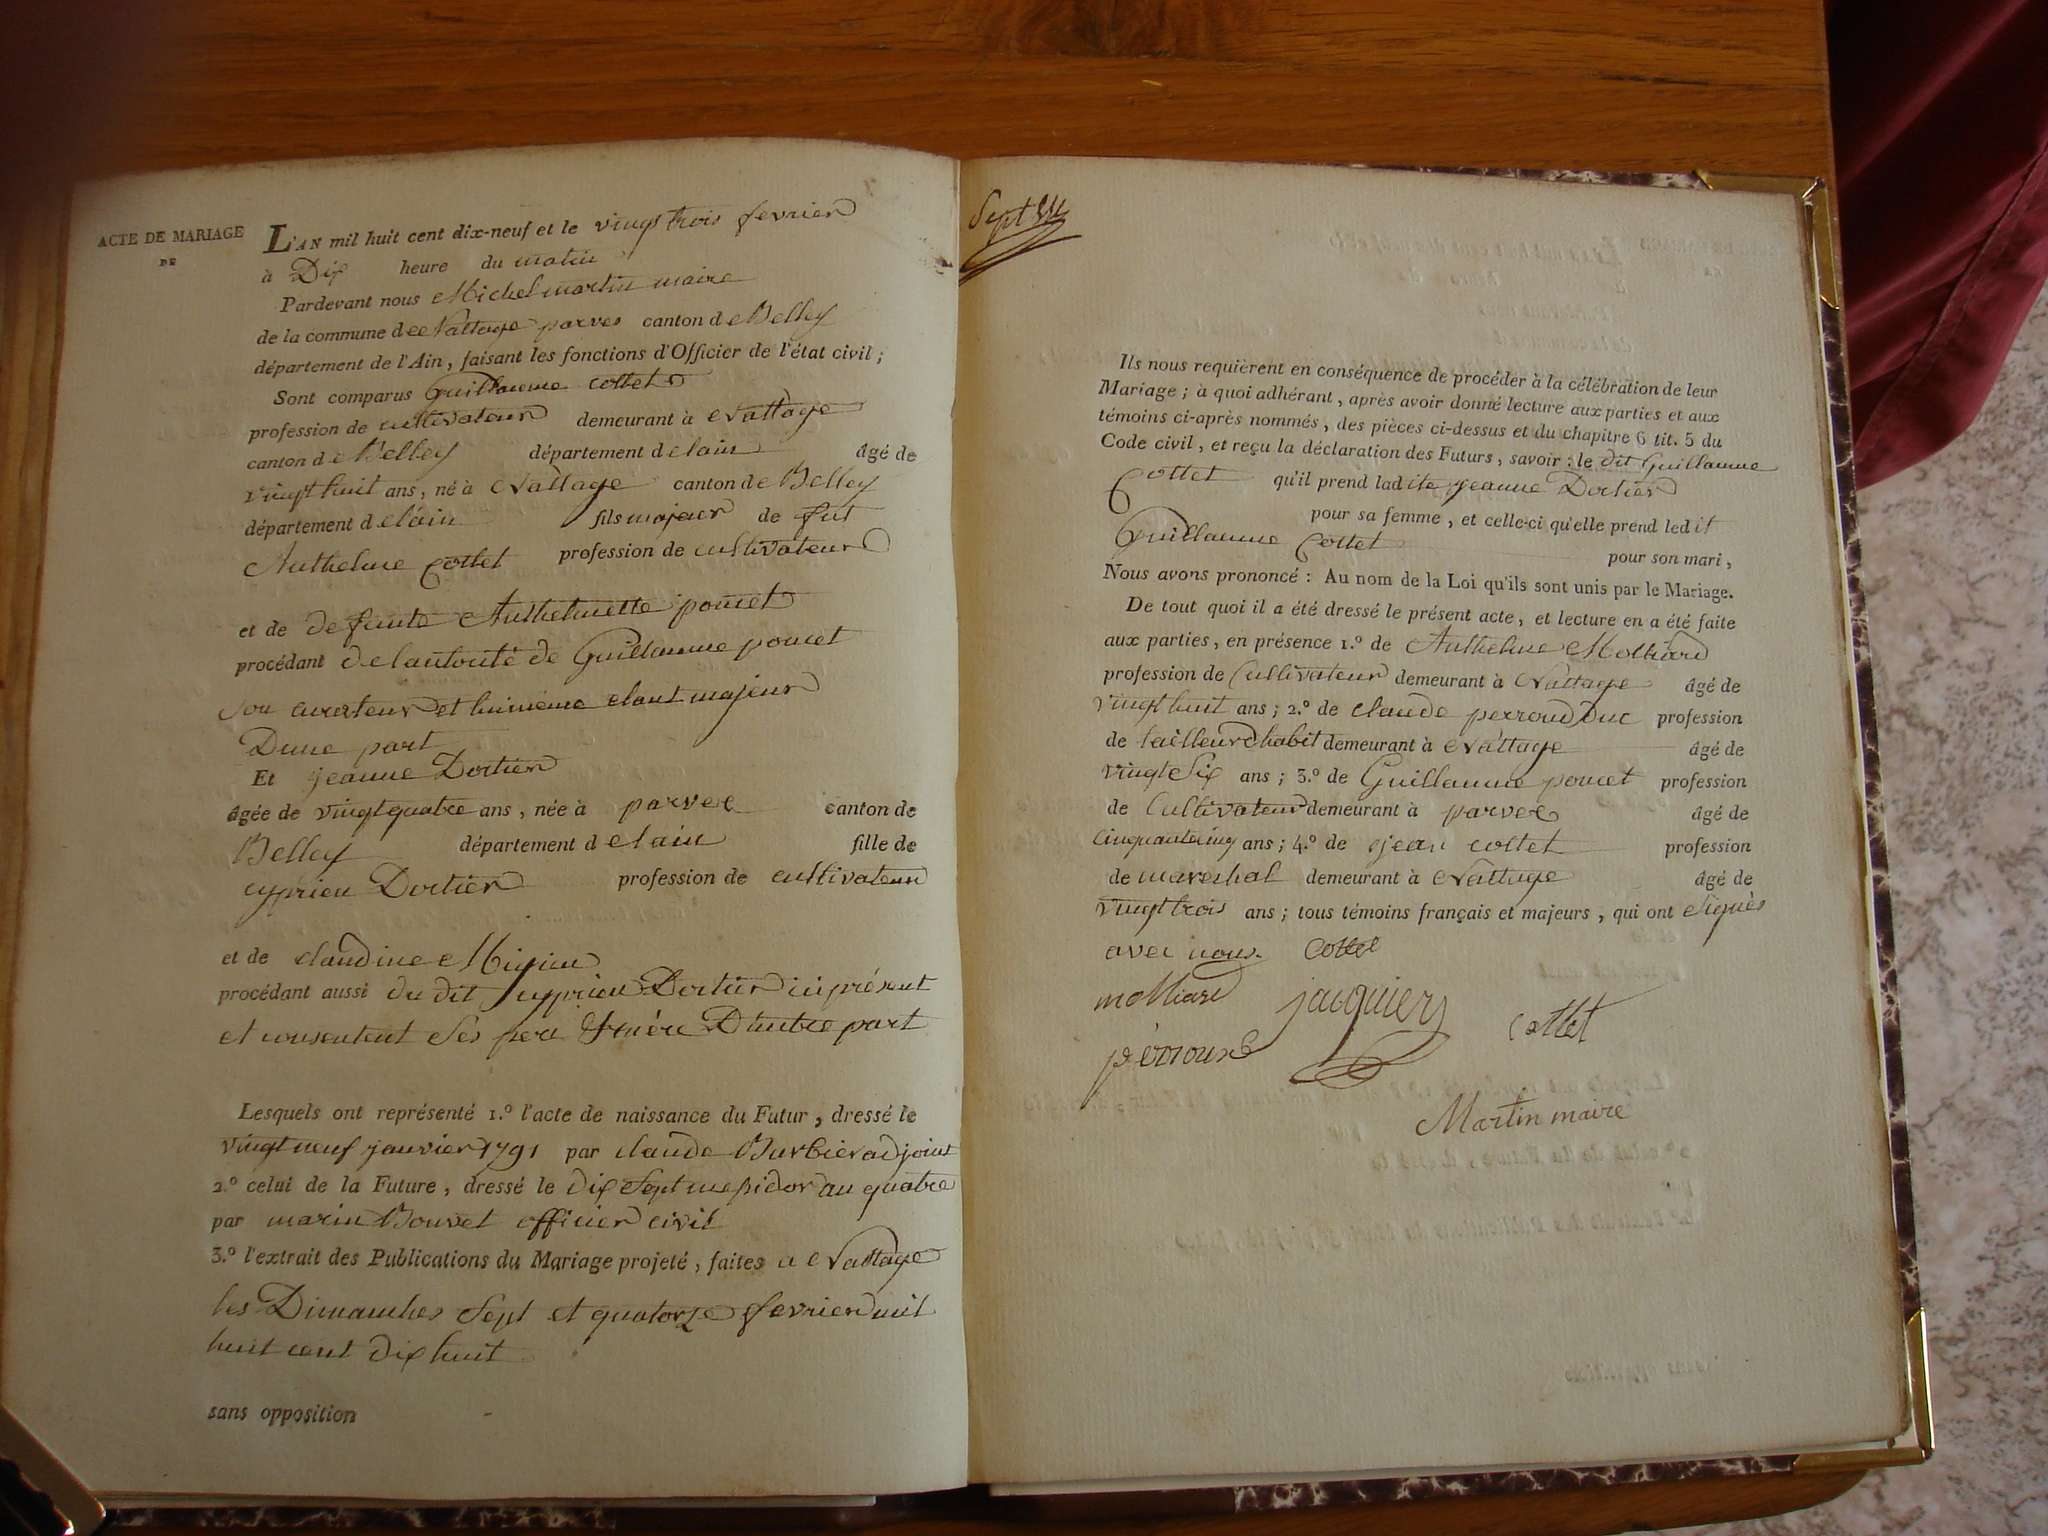 ACTE DE MARIAGE
DE
L'AN mil huit cent dix-neuf et le vingt trois fevrier
à Dix heure du matin
Pardevant nous Michel martin maire
de la commune de Nattage parves canton de Belley
département de l'Ain, faisant les fonctions d'Officier de l'état civil ;
Sont comparus Guillaume Cottet
profession de cultivateur demeurant à Nattage
canton de Belley département delain âgé de
vingt huit ans, né à Nattage canton de Belley
département delain fils majeur de fut
Anthelme Cottet profession de cultivateur
et de defunte Anthelmette poncet
procédant delautorité de Guillaume poncet
son curateur et luimême etant majeur
Dune part
Et jeanne Dortier
âgée de vingt quatre ans, née à parves canton de
Belley département delain fille de
cyprien Dortier profession de cultivateur
et de claudine
procédant aussi du dit cyprien Dortier ici présent
et consentent ses pere & mère Dautre part
Lesquels ont représenté 1.º l'acte de naissance du Futur, dressé le
vingt neuf janvier 1791 par claude Burbier adjoint
2.º celui de la Future, dressé le dix sept mesidor an quatre
par marin Bouvet officier civil
3.º l'extrait des Publications du Mariage projeté, faites a Nattage
les Dimanches sept et quatorze fevrier mil
huit cent dix huit
sans opposition
Sept
Ils nous requièrent en conséquence de procéder à la célébration de leur
Mariage ; à quoi adhérant, après avoir donné lecture aux parties et aux
témoins ci-après nommés, des pièces ci-dessus et du chapitre 6 tit. 5 du
Code civil, et reçu la déclaration des Futurs, savoir : le dit Guillaume
Cottet qu'il prend ladite jeanne Dortier
pour sa femme, et celle-ci qu'elle prend ledit
Guillaume Cottet pour son mari,
Nous avons prononcé : Au nom de la Loi qu'ils sont unis par le Mariage.
De tout quoi il a été dressé le présent acte, et lecture en a été faite
aux parties, en présence 1.º de Anthelme Molliard
profession de Cultivateur demeurant à Nattage âgé de
vingt huit ans ; 2.º de claude perroud Duc profession
de tailleur dhabit demeurant à Nattage âgé de
vingt six ans ; 3.º de Guillaume poncet profession
de Cultivateur demeurant à parves âgé de
cinquante cinq ans ; 4.º de jean cottet profession
de marechal demeurant à Nattage âgé de
vingt trois ans ; tous témoins français et majeurs, qui ont signés
avec nous. Cottet
molliard jacquier Cottet
perroux
Martin maire